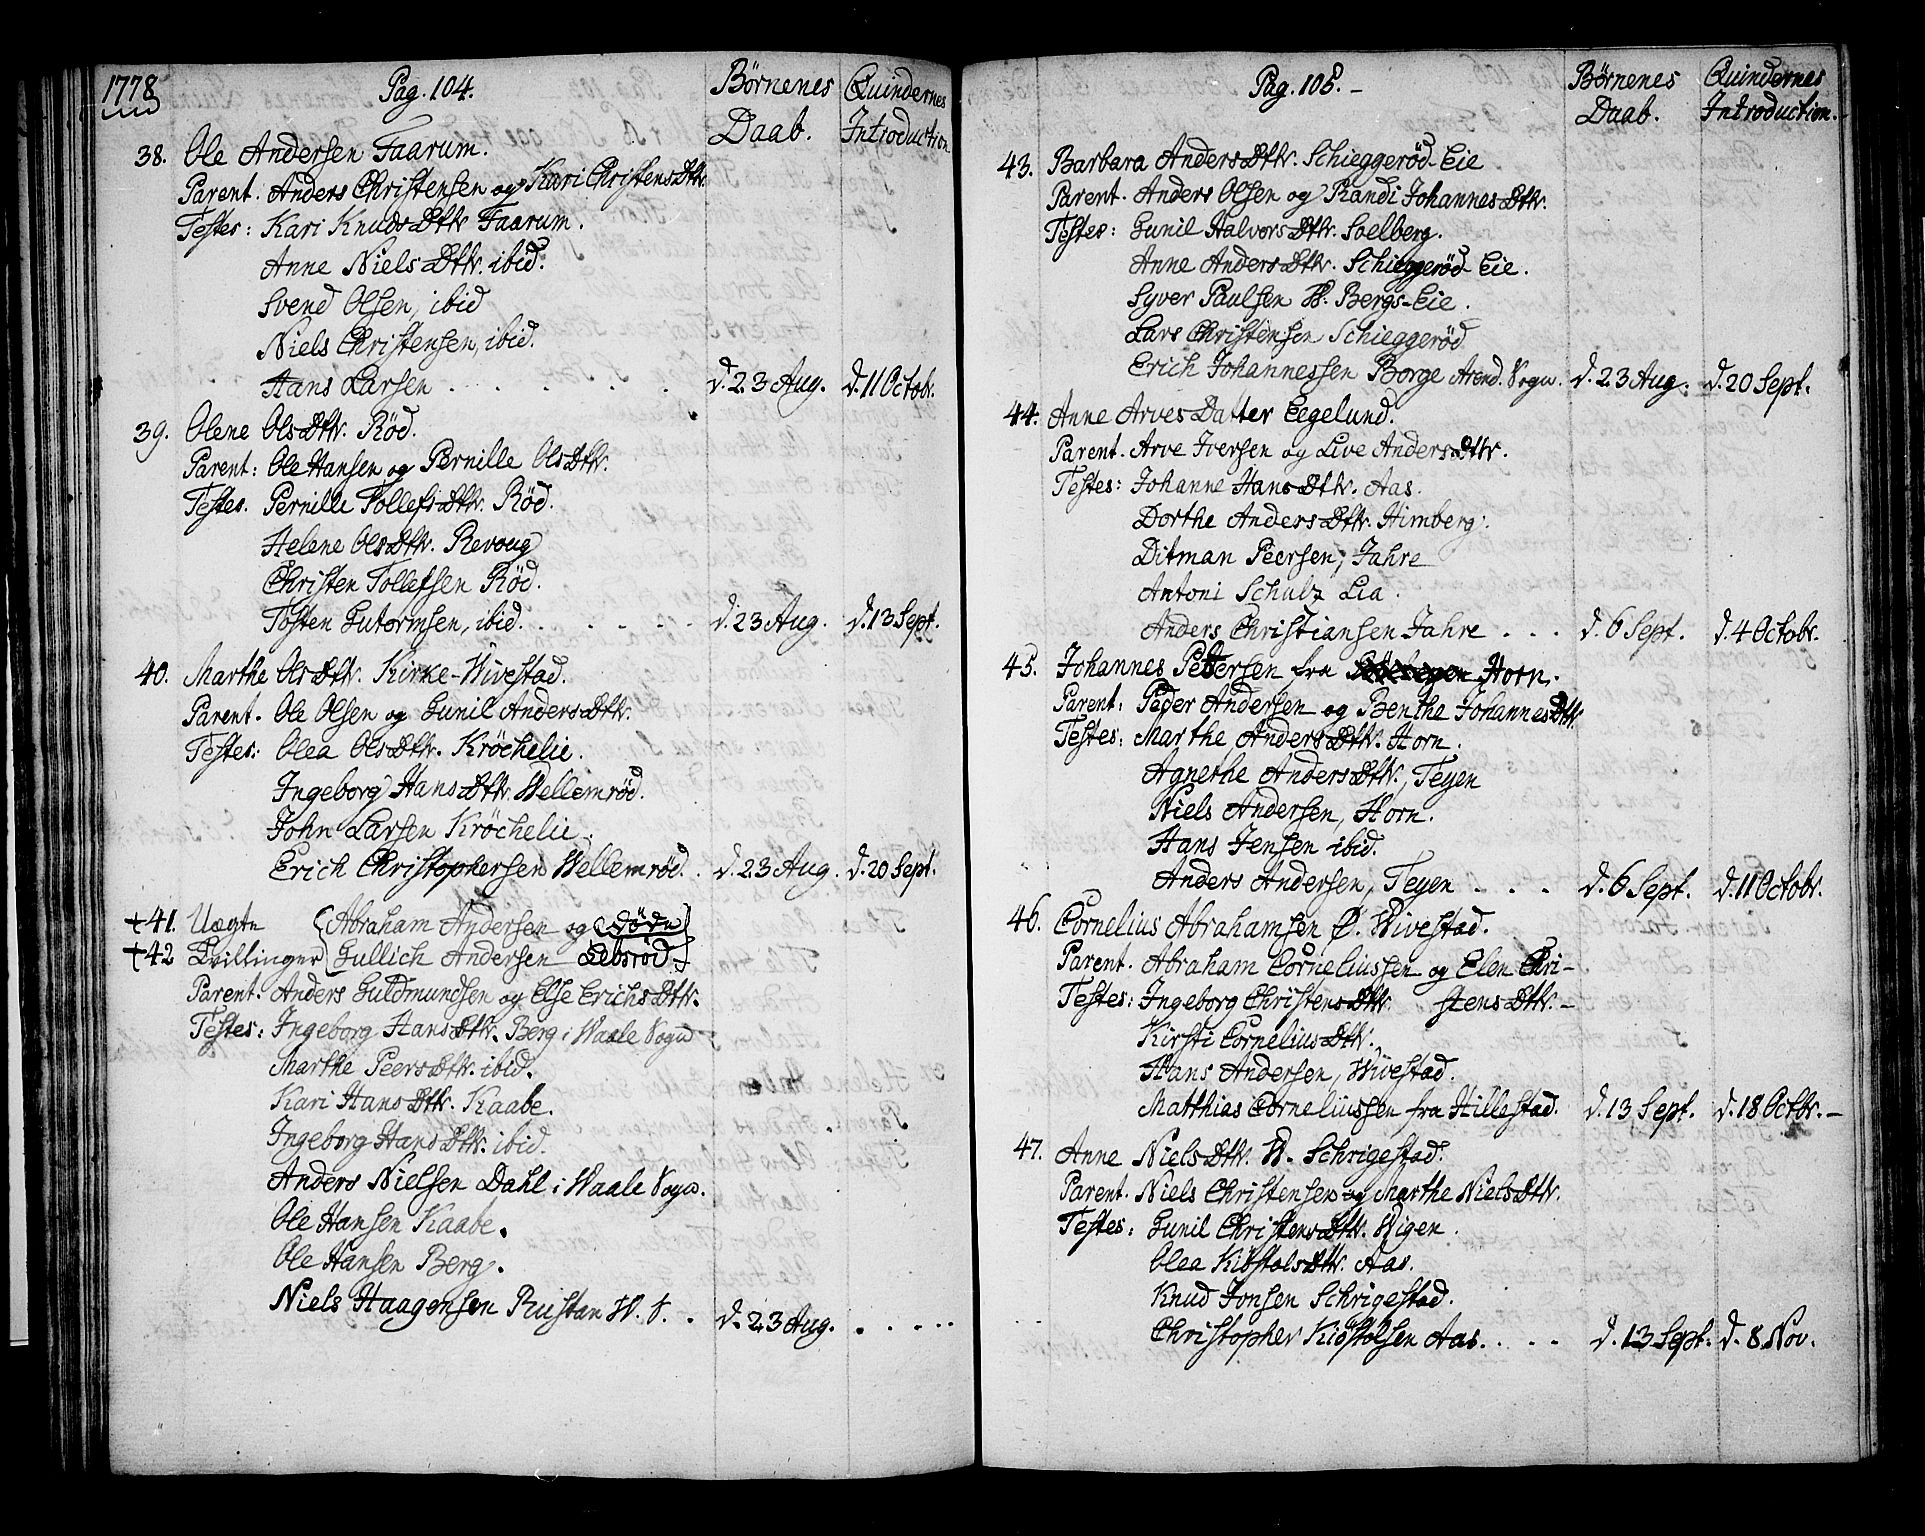 1778
Pag. 104.
Börnenes Daab.
Quindernes Introduction
38. Ole Andersen Faarum.
Parent. Anders Christensen og Kari ChristensDttr.
Testes: Kari KnudsDttr Faarum.
Anne NielsDttr. ibid.
Svend Olsen, ibid
Niels Christensen, ibid.
Hans Larsen . . . . . . d. 23 Aug. d. 11 Octobr.
39. Olene OlsDttr. Röd.
Parent: Ole Hansen og Pernille OlsDttr.
Testes. Pernille TollefsDttr. Röd.
Helene OlsDttr. Revoug
Christen Tollefsen Röd.
Tosten Gutormsen, ibid. . . . . . d. 23 Aug. d. 13 Sept.
40. Marthe OlsDttr. Kirke-Wivestad.
Parent. Ole Olsen og Gunil AndersDttr.
Testes: Olea OlsDttr. Kröchelie.
Ingeborg HansDttr. Wellemröd.
John Larsen Kröchelie.
Erich Christophersen Wellemröd. . d. 23 Aug. d. 20 Sept.
+41. Uægte Abraham Andersen og döde
+42 Tvillinger Gullich Andersen Lebsröd.
Parent. Anders Guldmundsen og Else ErichsDttr.
Testes: Ingeborg HansDttr. Berg i Waale Sogn
Marthe PeersDttr. ibid.
Kari HansDttr. Kaabe.
Ingeborg HansDttr. ibid.
Anders Nielsen Dahl i Waale Sogn.
Ole Hansen Kaabe.
Ole Hansen Berg.
Niels Haagensen Rustan W. S. . d. 23 Aug. . . . . .
Pag. 105. -
Börnenes Daab.
Quindernes Introduction.
43. Barbara AndersDttr. Schieggeröd-Eie
Parent. Anders Olsen og Randi JohannesDttr.
Testes: Gunil HalvorsDttr. Solberg.
Anne AndersDttr. Schieggeröd-Eie.
Syver Paulsen W. Bergs-Eie.
Lars Christensen Schieggeröd
Erich Johannessen Borge Arend. Sogn. d. 23 Aug. d. 20 Sept.
44. Anne ArvesDatter Eegelund.
Parent. Arve Iversen og Live AndersDttr.
Testes: Johanne HansDttr. Aas.
Dorthe AndersDttr. Himberg.
Ditman Peersen, Jahre
Antoni Schulz Lia.
Anders Christiansen Jahre . . . d. 6 Sept. d. 4 Octobr.
45. Johannes Pettersen fra Horn.
Parent: Peder Andersen og Benthe JohannesDttr.
Testes: Marthe AndersDttr. Horn.
Agnethe AndersDttr, Teyen
Niels Andersen, Horn.
Hans Jensen ibid.
Anders Andersen, Teyen . . . d. 6 Sept. d. 11 Octobr.
46. Cornelius Abrahamsen Ö. Wivestad.
Parent. Abraham Corneliussen og Elen Chri-
Testes: Ingeborg ChristensDttr. stensDttr. -
Kirsti CorneliusDttr.
Hans Andersen, Wivestad.
Matthias Corneliussen fra Hillestad. d. 13 Sept. d. 18 Octbr. -
47. Anne NielsDttr. W. Schrigestad.
Parent. Niels Christensen og Marthe NielsDttr.
Testes: Gunil ChristensDttr. Wigen.
Olea KibstolsDttr. Aas.
Knud Jonsen Schrigestad.
Christopher Kibstolsen Aas. . . . d. 13 Sept. d. 8 Nov.